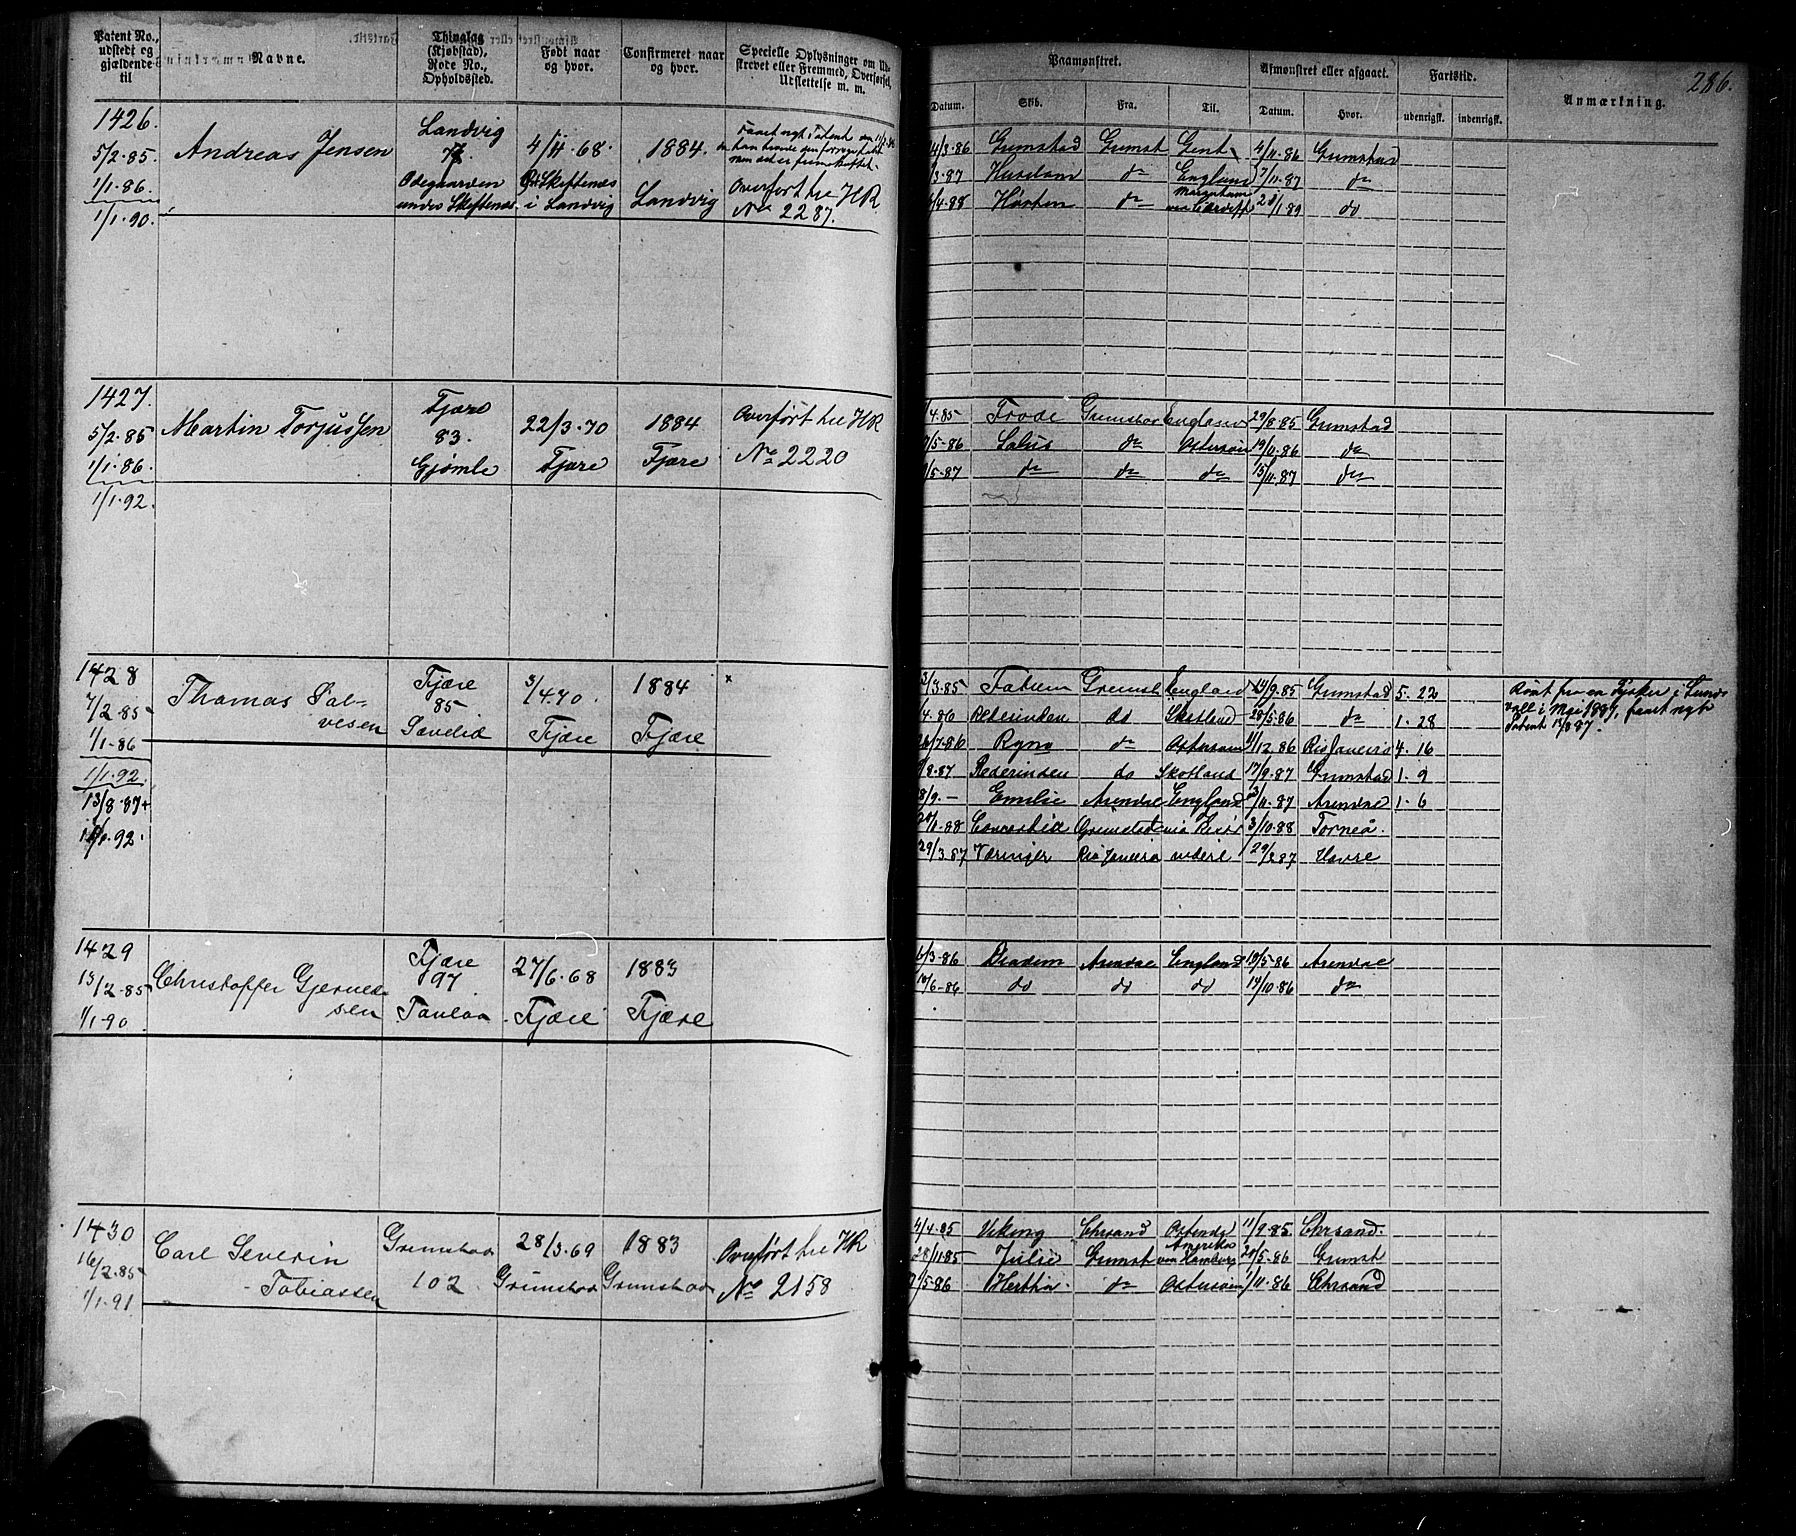 286.
Patent No., udstedt og gjældende til
Navne.
Thinglag (Kjøbstad), Rode No., Opholdssted.
Født naar og hvor.
Confirmeret naar og hvor.
Specielle Oplysninger om Ud-
skrevet eller Fremmed, Overførsel,
Udslettelse m. m.
Paamønstret.
Afmønstret eller afgaaet.
Fartstid.
Anmærkning.
Datum. Skib. Fra. Til. Datum. Hvor. udenrigsk. indenrigsk.
1426.
5/2·85.
1/1·86.
1/1·90.
Andreas Jensen
Landvig
Ødegaarden
under Skiftenes
4/11·68.
Skiftenes
i Landvig
1884.
Landvig
Overført til HR
No 2287.
4/3·86 Grimstad Grimst Gent 4/11·86 Grimstad
3·87 do England 7/11·87 do
4·88 do via Cardiff 1·89 do
1427.
5/2·85
1/1·86.
1/1·92.
Martin Torjussen
Fjære
83.
Gjømle
22/3·70
Fjære
1884
Fjære
Overført til HR
No 2220
4·85 Frode Grimstad England 29/8·85 Grimstad
5·86 Salus do Østersøen 19/11·86 do
5·87 do do do 15/11·87 do
1428
7/2·85
1/1·86
1/1·92.
13/8·87+
1·92.
Thomas Sal-
vesen
Fjære
85
Sævelid
3/4·70.
Fjære
1884
Fjære
3·85 Grimst England 14/9·85 Grimstad 5·22
4·86 Rederinden do Skotland 28/5·86 do 1·28
7·86 Ryno do Østersøen 11/12·86 Rio Janeiro 4·16
8·87 Rederinden do Skotland 17/9·87 Grimstad 1·9
8/9·– Emilie Arendal England 11·87 Arendal 1·6
88 Concordia Grimstad via 3/10·88 Torneå.
29/3·87 Væringer Rio Janeiro 29/3·87 Havre
i Mai 1887, faaet nyt
Patent 13/8 87.
1429
13/2·85
1/1·90
Christoffer Gjerued-
sen
Fjære
97
27/6·68
Fjære
1883
Fjære
6/3·86 Diadem Arendal England 19/5·86 Arendal
6·86 do do do 19/10·86 do
1430
16/2·85
1/1·91
Carl Severin
Tobiassen
Grimstad
102
28/3·69
Grimstad
1883
Grimstad
Overført til HR
No 2158
4/4·85 Viking Chrsand Ostende 11/9·85 Chrsand.
28/11·85 Julie Grimst Amerika via Hamburg 20/5·86 Grimst
5·86 Hertha do Østersøen 1/11·86 Chrsand